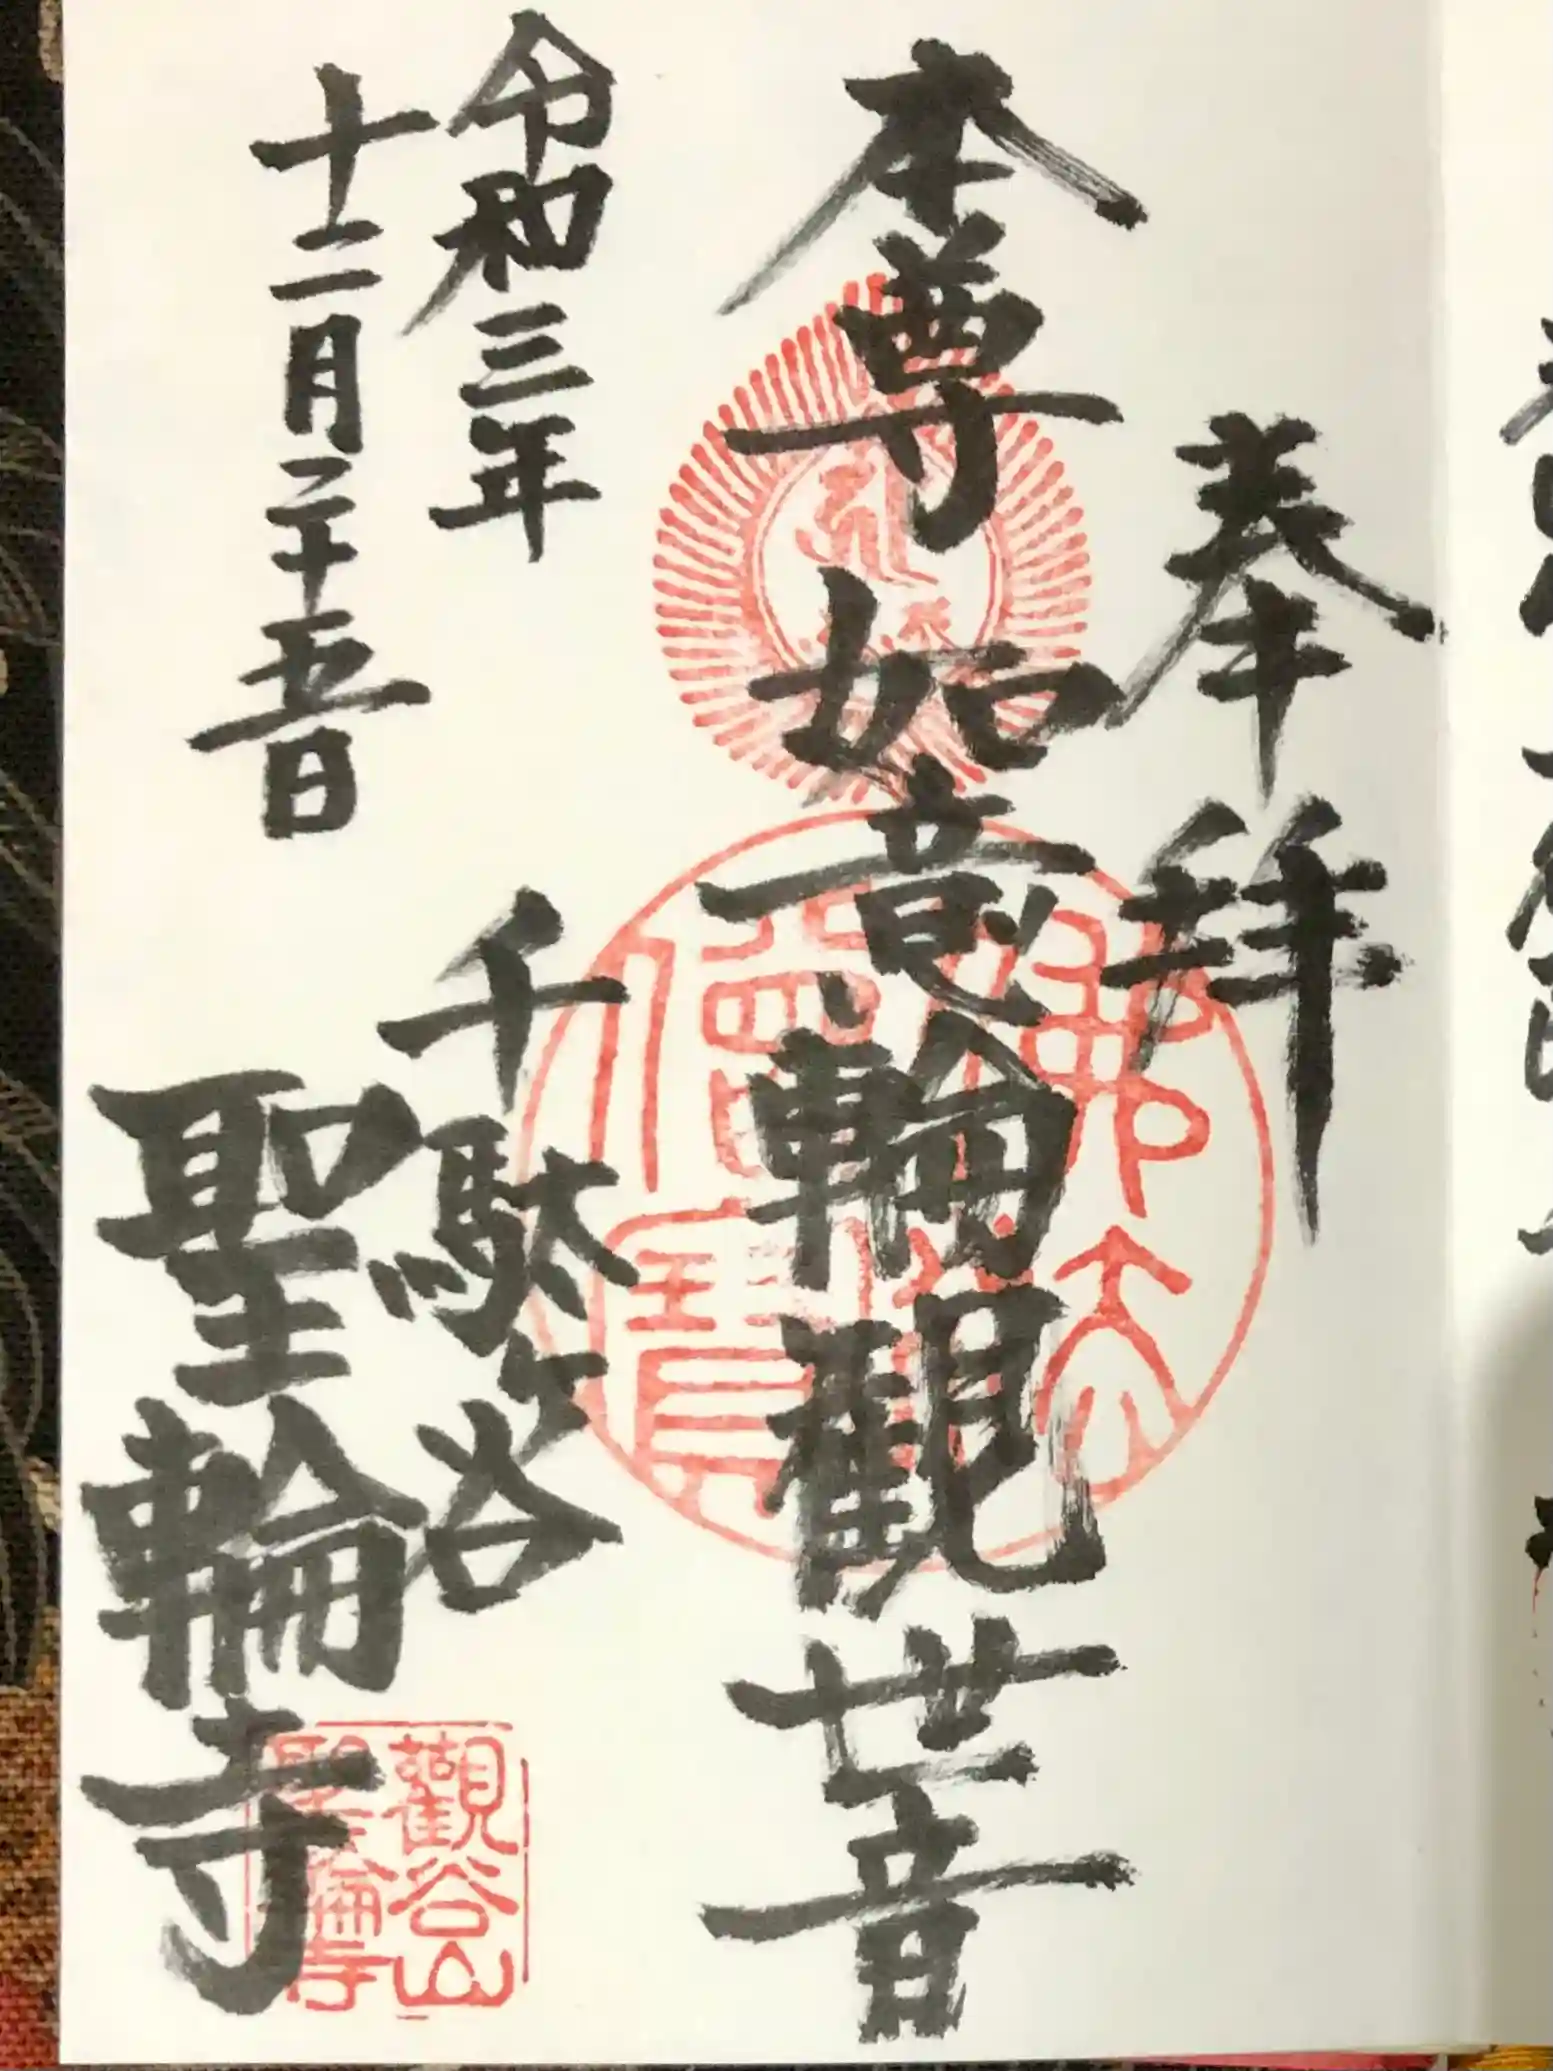 奉拝
本尊如意輪観世音
令和三年
十二月二十五日
千駄ヶ谷
聖輪寺
佛法僧寶
觀谷山
聖輪寺